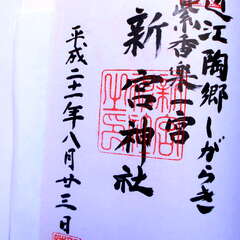 近江陶郷しがらき
紫香楽一宮
新宮神社
平成二十二年八月廿三日